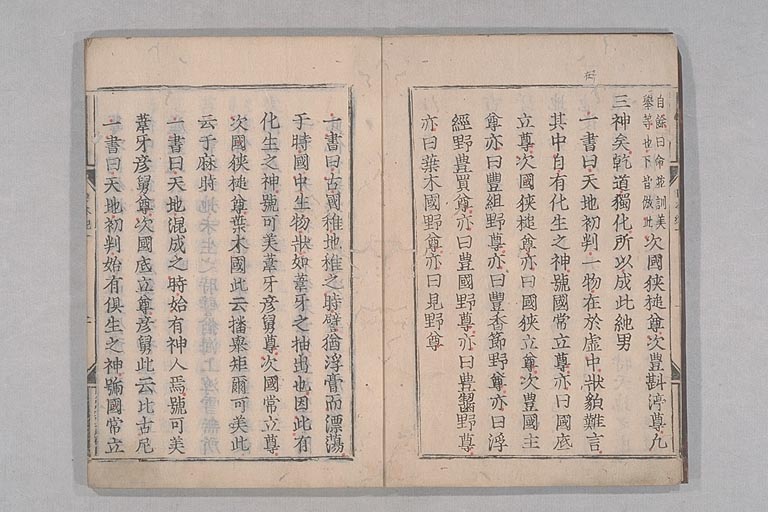 自餘曰命並訓美
舉等也下皆倣此
次國狹槌尊次豐斟渟尊凡
三神矣乾道獨化所以成此純男
一書曰天地初判一物在於虛中狀貌難言
其中自有化生之神號國常立尊亦曰國底
立尊次國狹槌尊亦曰國狹立尊次豐國主
尊亦曰豐組野尊亦曰豐香節野尊亦曰浮
經野豐買尊亦曰豐國野尊亦曰豐齧野尊
亦曰葉木國野尊亦曰見野尊
一書曰古國稚地稚之時譬猶浮膏而漂蕩
于時國中生物狀如葦牙之抽出也因此有
化生之神號可美葦牙彥舅尊次國常立尊
次國狹槌尊葉木國此云播粟矩爾可美此
云于麻時
一書曰天地混成之時始有神人焉號可美
葦牙彥舅尊次國底立尊彥舅此云比古尼
一書曰天地初判始有俱生之神號國常立